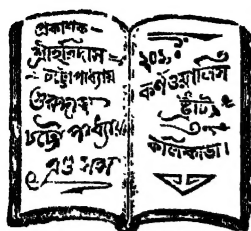 প্রকাশক—
শ্রীহরিদাস
চট্টোপাধ্যায়
গুরুদাস
চট্টোপাধ্যায়
এণ্ড সন্স
২০১,
কর্ণওয়ালিস
ষ্ট্রীট
কলিকাতা।